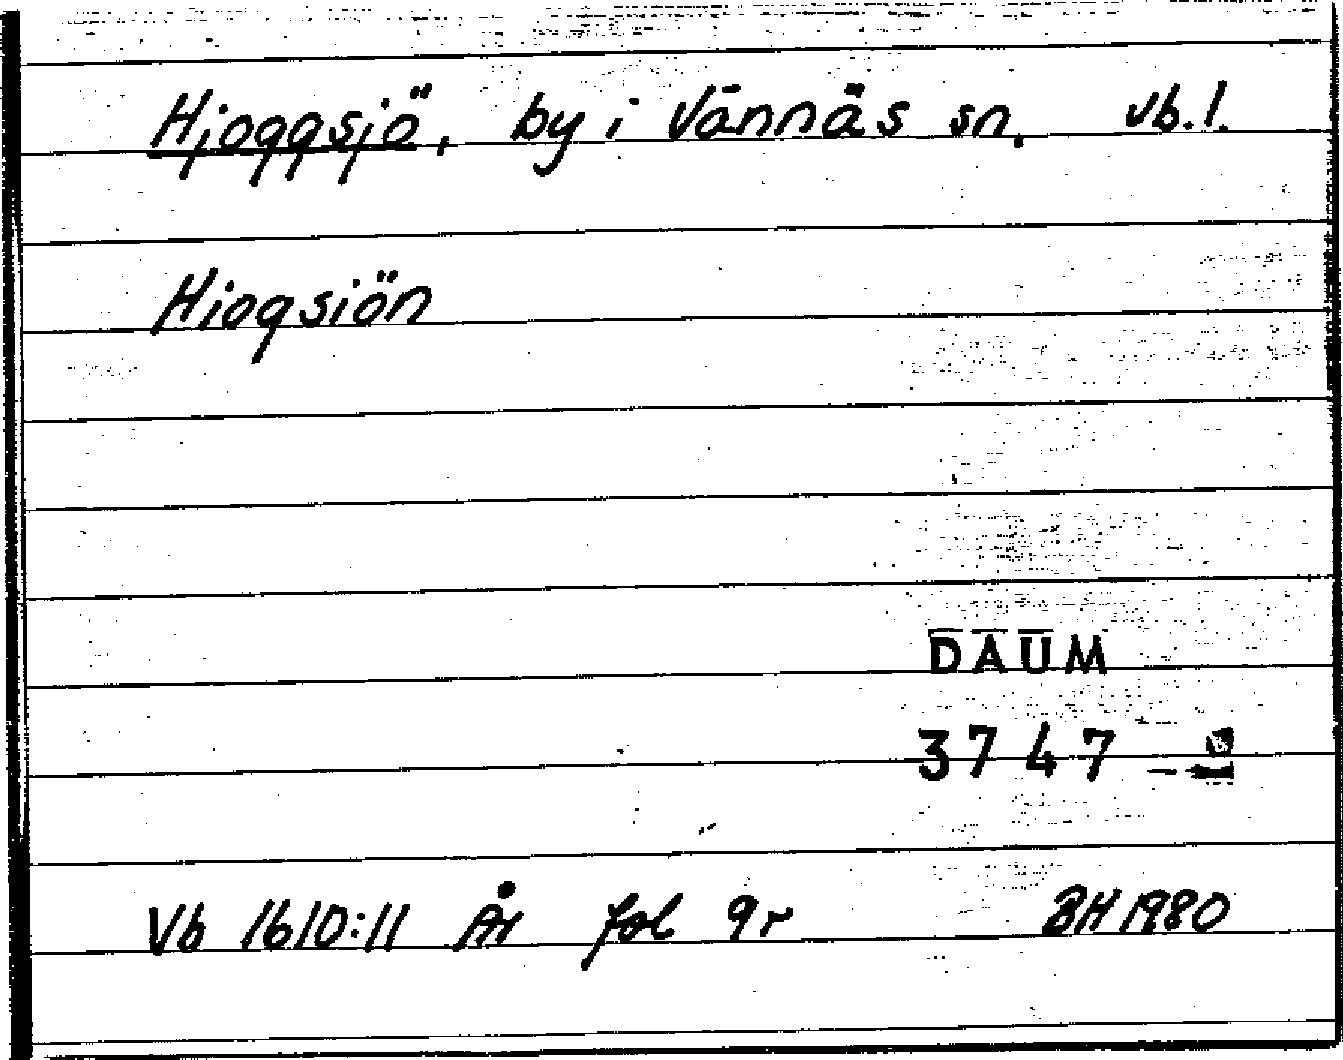 Hjoggsjö, by i Vännäs sn. Vb.l.
Hiogsiön
DAUM
3747
Vb 1610:11 År fol 9r BH 1980